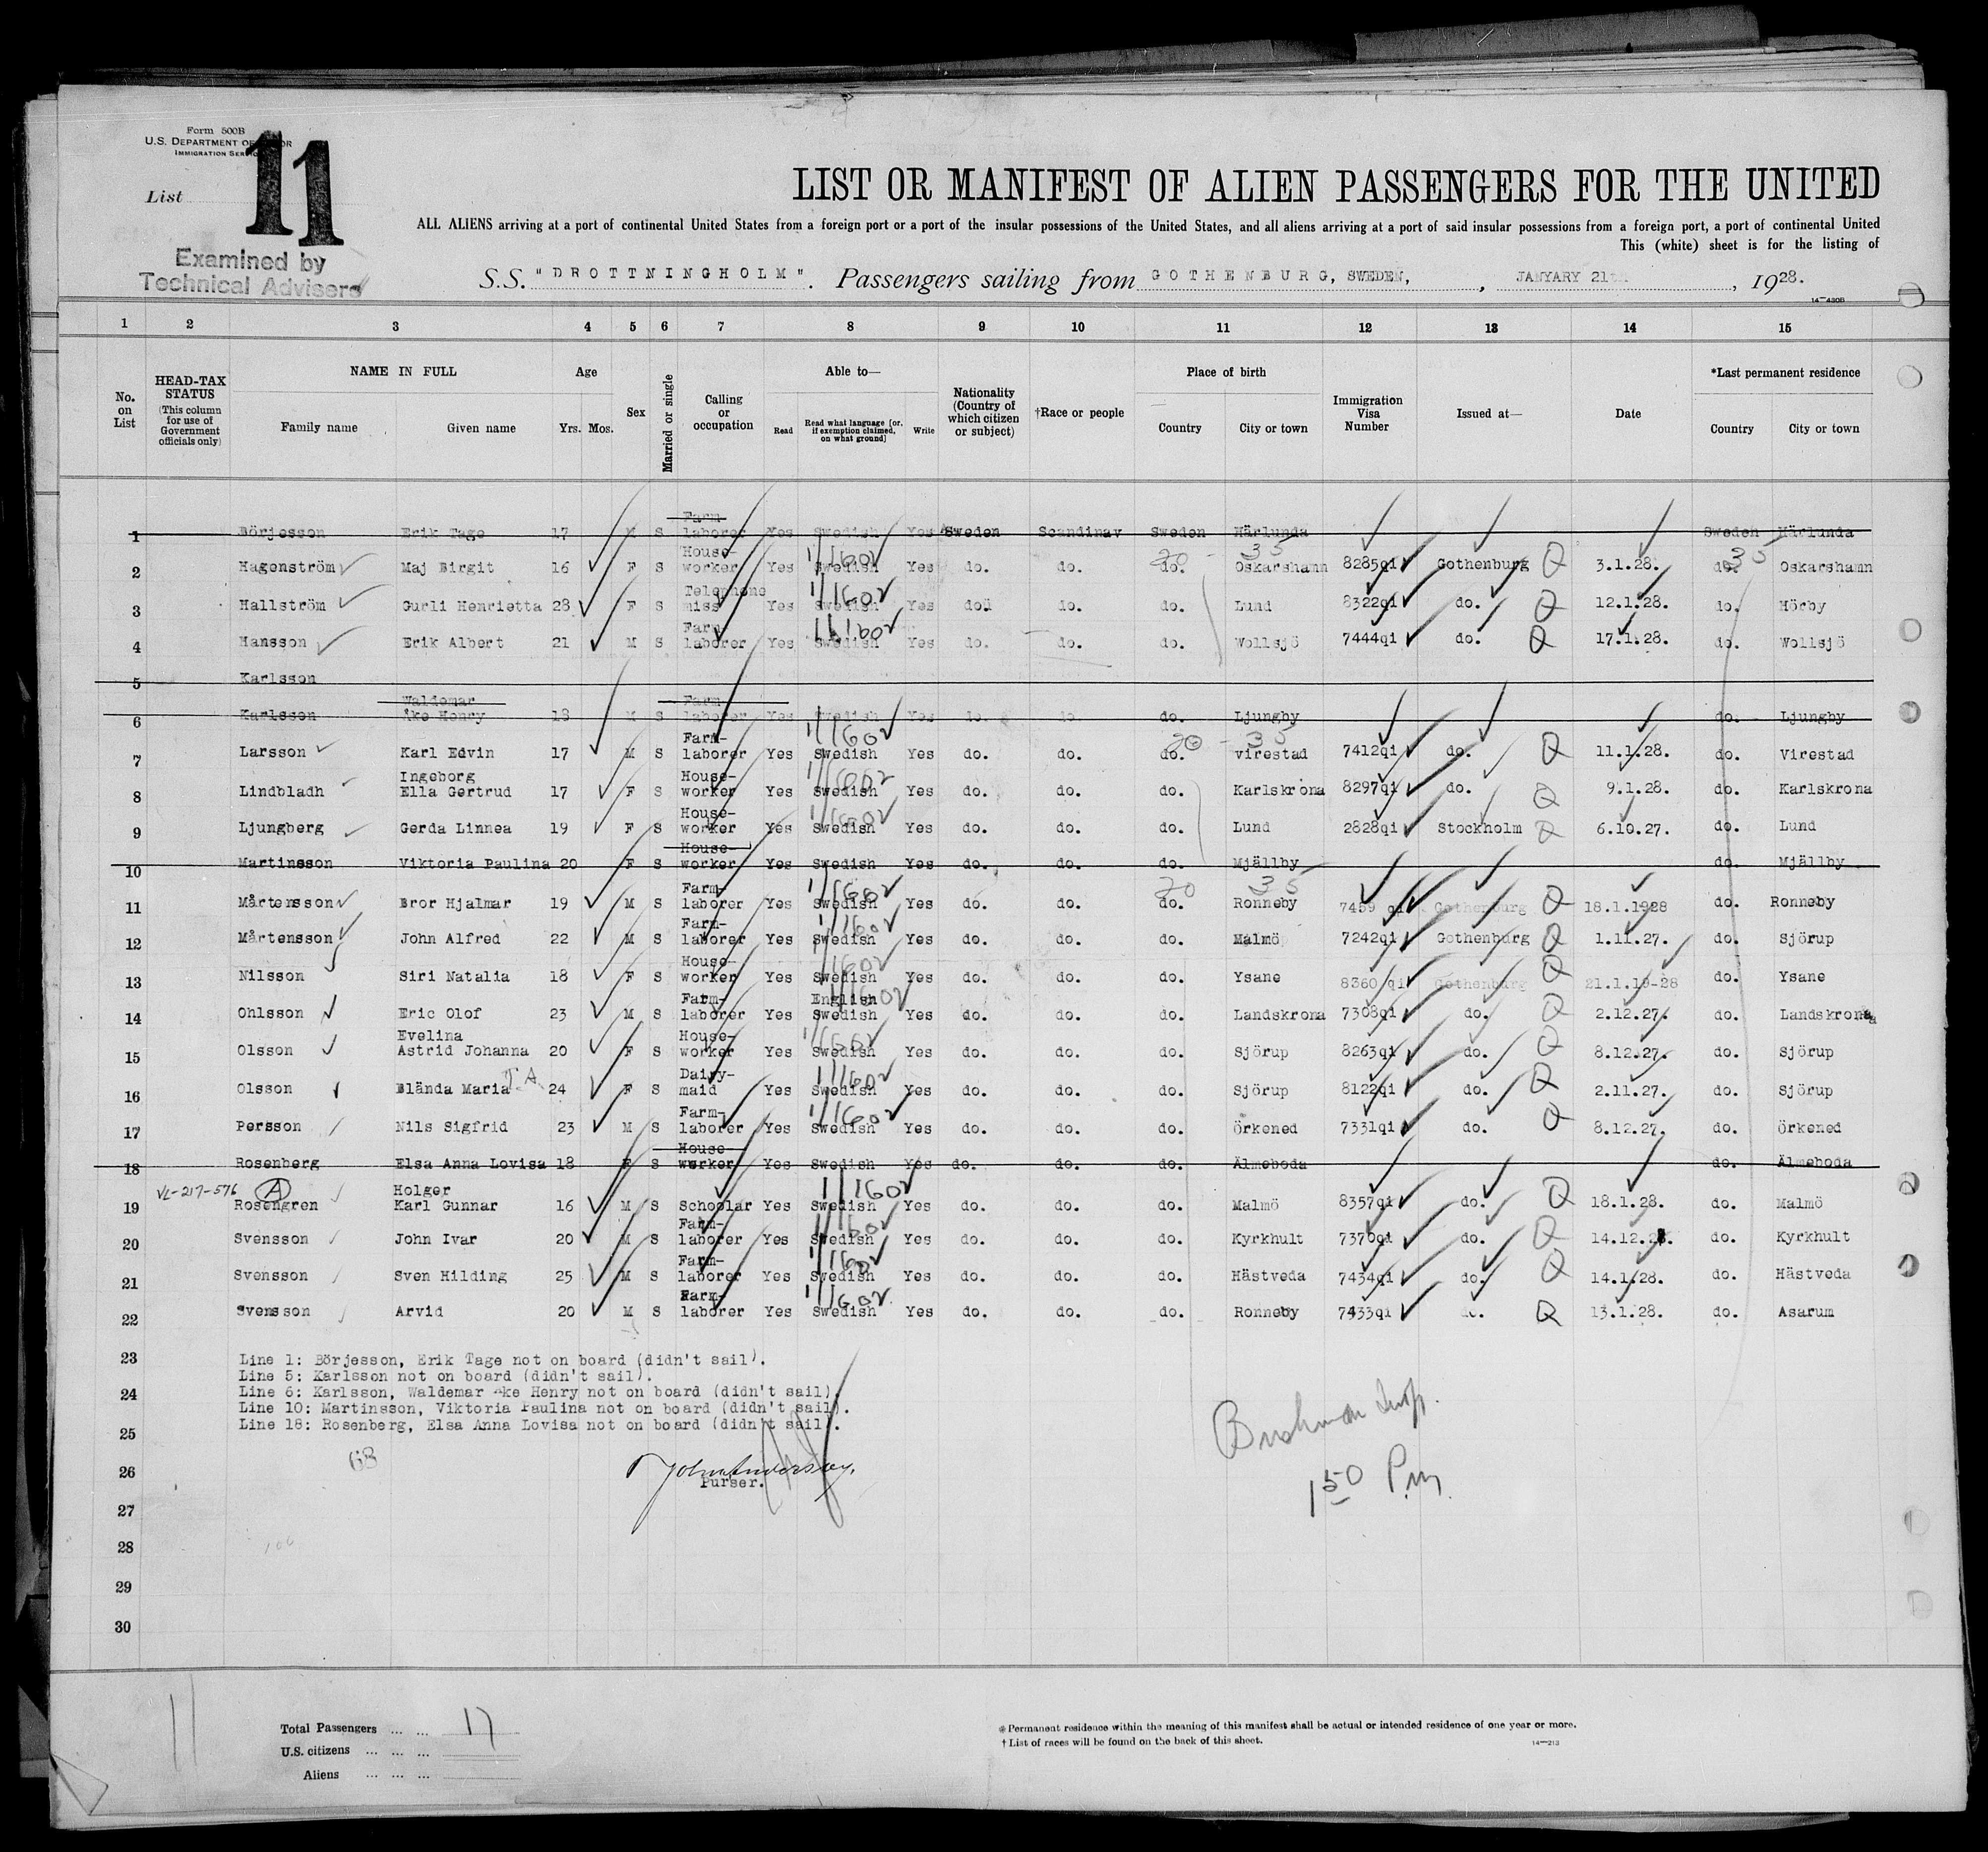 Form 500B
U.S. DEPARTMENT OF
IMMIGRATION SERVICE
List 11
Examined by
Technical Advisers
LIST OR MANIFEST OF ALIEN PASSENGERS FOR THE UNITED
ALL ALIENS arriving at a port of continental United States from a foreign port or a port of the insular possessions of the United States, and all aliens arriving at a port of said insular possessions from a foreign port, a port of continental United
This (white) sheet is for the listing of
S.S. "DROTTNINGHOLM". Passengers sailing from GOTHENBURG, SWEDEN, , JANYARY 21 , 1928.
14—430B
1 2 3 4 5 6 7 8 9 10 11 12 13 14 15
No. on List
HEAD-TAX STATUS (This column for use of Government officials only)
NAME IN FULL
Family name Given name
Age
Yrs. Mos.
Sex
Married or single
Calling or occupation
Able to—
Read Read what language [or, if exemption claimed, on what ground] Write
Nationality (Country of which citizen or subject)
†Race or people
Place of birth
Country City or town
Immigration Visa Number
Issued at—
Date
*Last permanent residence
Country City or town
1 Börjesson Erik Tage 17 M S Farm-laborer Yes Swedish Yes Sweden Scandinav Sweden Härlunda Sweden Härlunda
20 - 35 35
2 Hagenström Maj Birgit 16 F S House-worker Yes Swedish Yes do. do. do. Oskarshamn 8285qi Gothenburg Q 3.1.28. do. Oskarshamn
3 Hallström Gurli Henrietta 28 F S Telephone miss Yes Swedish Yes do. do. do. Lund 8322qi do. Q 12.1.28. do. Hörby
4 Hansson Erik Albert 21 M S Farm-laborer Yes Swedish Yes do. do. do. Wollsjö 7444qi do. Q 17.1.28. do. Wollsjö
5 Karlsson
6 Karlsson Waldemar Åke Henry 18 M S Farm-laborer Yes Swedish Yes do. do. do. Ljungby do. Ljungby
20 - 35
7 Larsson Karl Edvin 17 M S Farm-laborer Yes Swedish Yes do. do. do. Virestad 7412qi do. Q 11.1.28. do. Virestad
8 Lindbladh Ingeborg Ella Gertrud 17 F S House-worker Yes Swedish Yes do. do. do. Karlskrona 8297qi do. Q 9.1.28. do. Karlskrona
9 Ljungberg Gerda Linnea 19 F S House-worker Yes Swedish Yes do. do. do. Lund 2828qi Stockholm Q 6.10.27. do. Lund
10 Martinsson Viktoria Paulina 20 F S House-worker Yes Swedish Yes do. do. do. Mjällby do. Mjällby
20 35
11 Mårtensson Bror Hjalmar 19 M S Farm-laborer Yes Swedish Yes do. do. do. Ronneby 7459 qi Gothenburg Q 18.1.1928 do. Ronneby
12 Mårtensson John Alfred 22 M S Farm-laborer Yes Swedish Yes do. do. do. Malmö 7242qi Gothenburg Q 1.11.27. do. Sjörup
13 Nilsson Siri Natalia 18 F S House-worker Yes Swedish Yes do. do. do. Ysane 8360 qi Gothenburg Q 21.1.19-28 do. Ysane
14 Ohlsson Eric Olof 23 M S Farm-laborer Yes English Swedish Yes do. do. do. Landskrona 7308qi do. Q 2.12.27. do. Landskrona
15 Olsson Evelina Astrid Johanna 20 F S House-worker Yes Swedish Yes do. do. do. Sjörup 8263qi do. Q 8.12.27. do. Sjörup
16 Olsson Blända Maria 24 F S Dairy-maid Yes Swedish Yes do. do. do. Sjörup 8122qi do. Q 2.11.27. do. Sjörup
17 Persson Nils Sigfrid 23 M S Farm-laborer Yes Swedish Yes do. do. do. Örkened 7331qi do. Q 8.12.27. do. Örkened
18 Rosenberg Elsa Anna Lovisa 18 F S House-worker Yes Swedish Yes do. do. do. Älmeboda do. Älmeboda
VL-217-576 A
19 Rosengren Holger Karl Gunnar 16 M S Scholar Yes Swedish Yes do. do. do. Malmö 8357qi do. Q 18.1.28. do. Malmö
20 Svensson John Ivar 20 M S Farm-laborer Yes Swedish Yes do. do. do. Kyrkhult 7370qi do. Q 14.12. do. Kyrkhult
21 Svensson Sven Hilding 25 M S Farm-laborer Yes Swedish Yes do. do. do. Hästveda 7434qi do. Q 14.1.28. do. Hästveda
22 Svensson Arvid 20 M S Farm-laborer Yes Swedish Yes do. do. do. Ronneby 7433qi do. Q 13.1.28. do. Asarum
23 Line 1: Börjesson, Erik Tage not on board (didn't sail).
Line 5: Karlsson not on board (didn't sail).
24 Line 6: Karlsson, Waldemar Åke Henry not on board (didn't sail).
Line 10: Martinsson, Viktoria Paulina not on board (didn't sail).
25 Line 18: Rosenberg, Elsa Anna Lovisa not on board (didn't sail).
68
26
Purser.
150 P.m.
27
28
29
30
11
Total Passengers ... ... 17
U.S. citizens ... ... ...
Aliens ... ... ...
* Permanent residence within the meaning of this manifest shall be actual or intended residence of one year or more.
† List of races will be found on the back of this sheet.
14—213